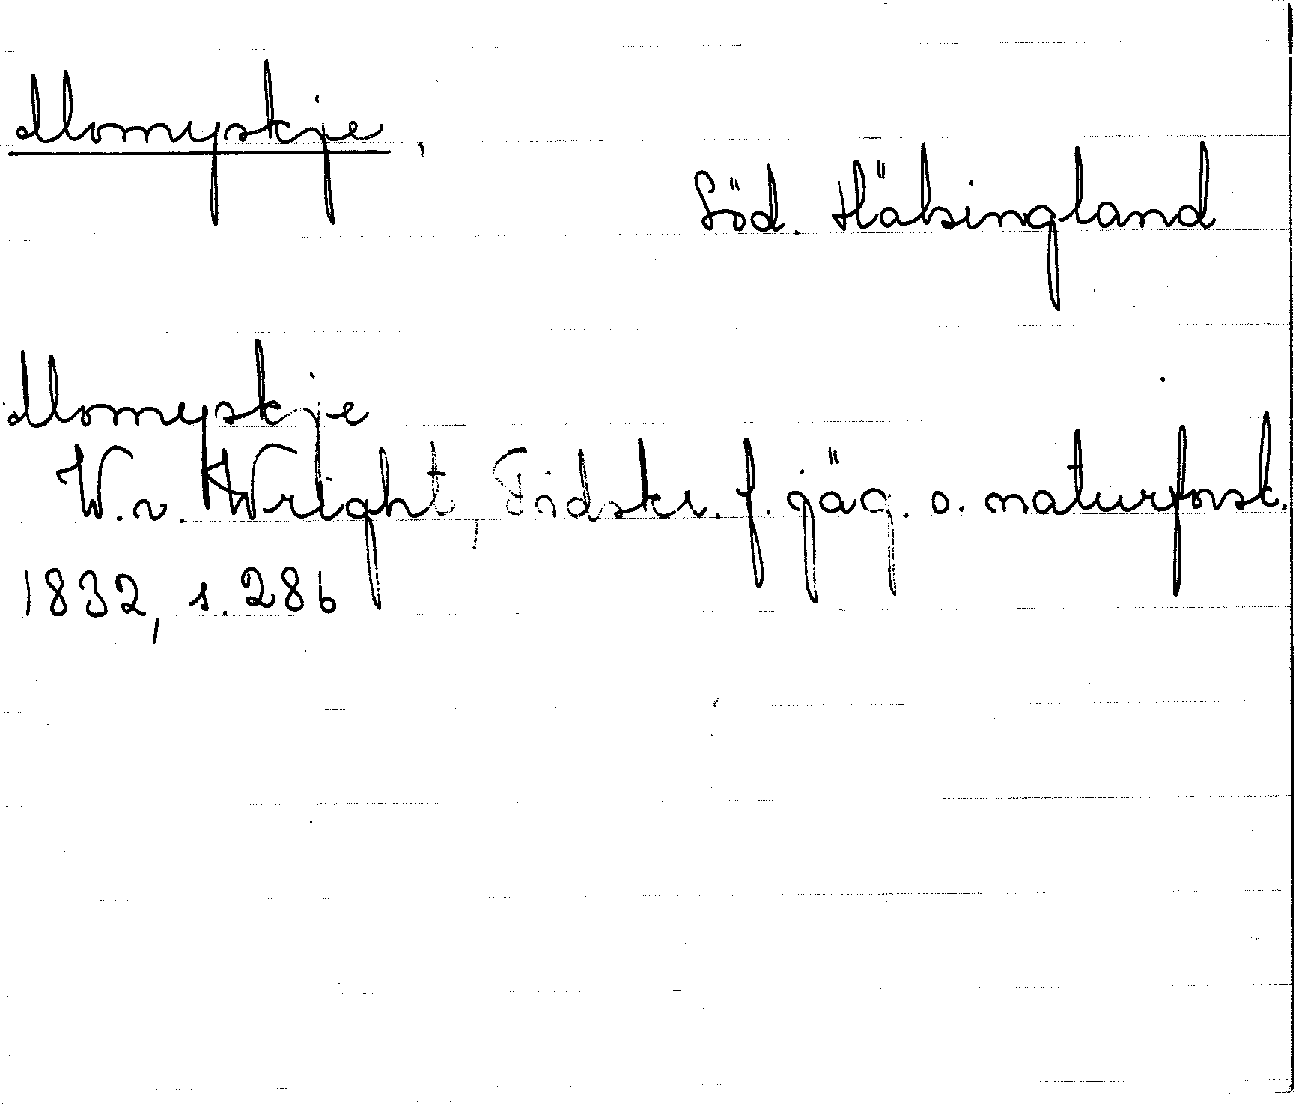 Momyskje,
Söd. Hälsingland
Momyskje
W. v. Wright, Tidskr. f. jäg. o. naturforsk.
1832, s. 286